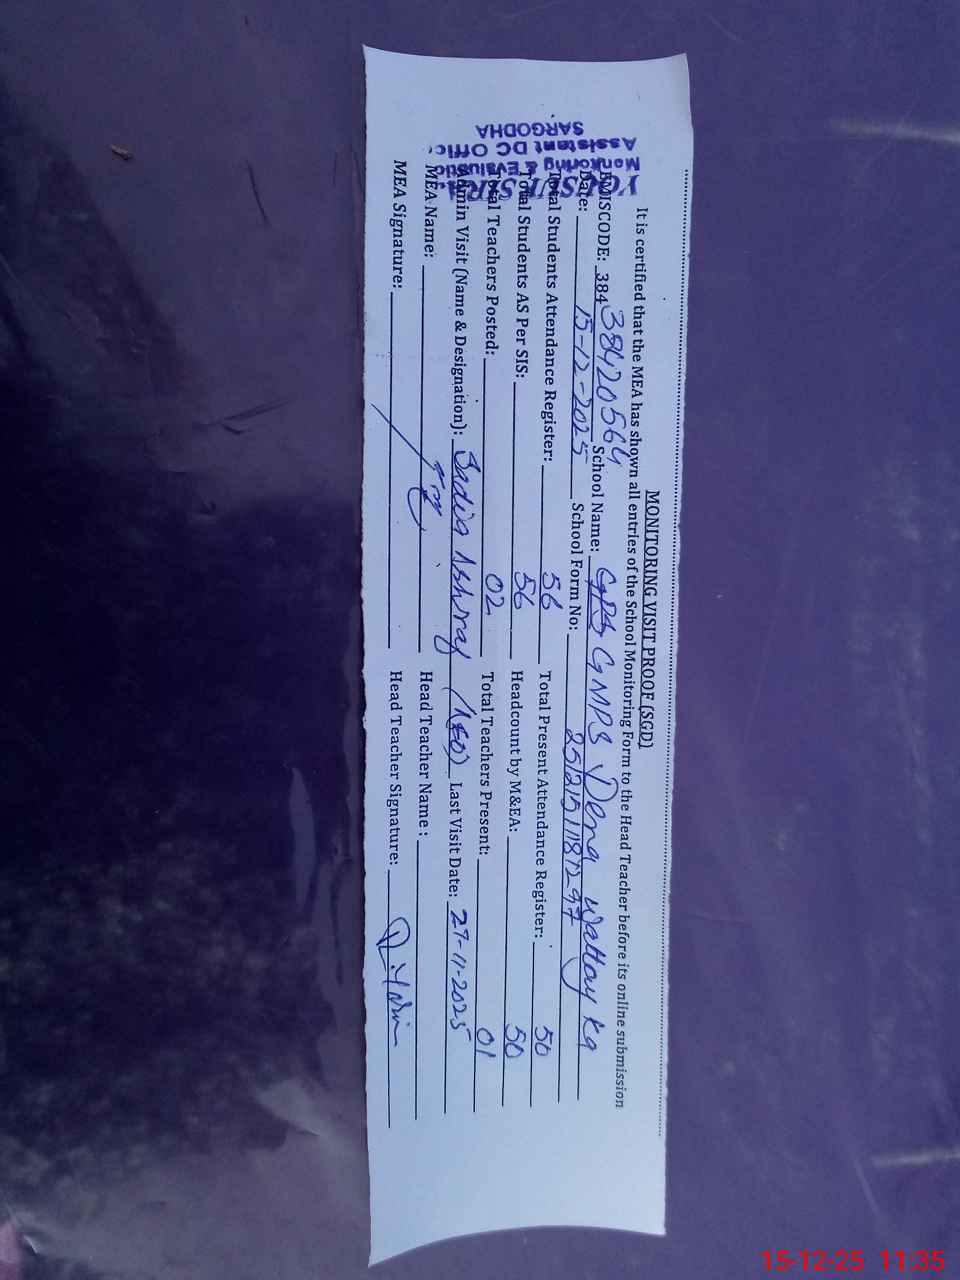 MONITORING VISIT PROOF (SGD)
It is certified that the MEA has shown all entries of the School Monitoring Form to the Head Teacher before its online submission
EMISCODE: 384 38420564 School Name: GPS GMPS Dera Wattay ka
Date: 15-12-2025 School Form No:
Total Students Attendance Register: 56 Total Present Attendance Register: 50
Total Students AS Per SIS: 56 Headcount by M&EA: 50
Total Teachers Posted: 02 Total Teachers Present: 01
Admin Visit (Name & Designation): Sadia Ashraf (AEO) Last Visit Date: 27-11-2025
MEA Name: Head Teacher Name :
MEA Signature: Head Teacher Signature:
Monitoring & Evaluation
Assistant DC Office
SARGODHA
15-12-25 11:35